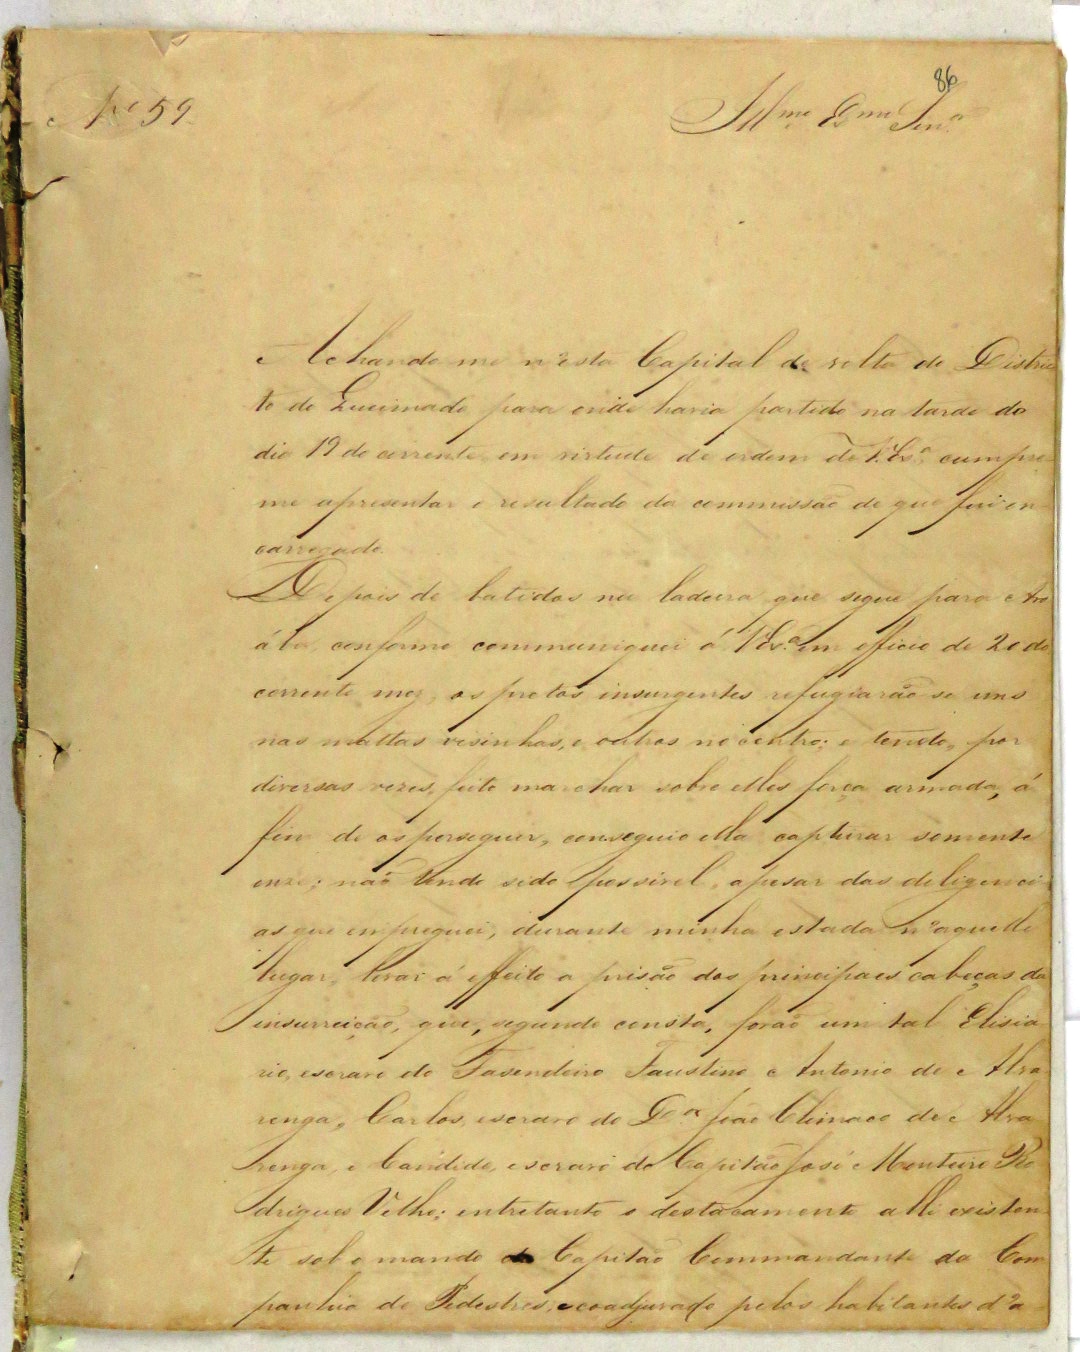 86
Nº 59
Illmº Exmº Senr.
Achando me n'esta Capital de volta do Distric
to do Queimado para onde havia partido na tarde do
dia 19 do corrente em virtude de ordem de V. Exª, cumpre
me apresentar o resultado da commissão de que fui en
carregado.
Depois de batidos na ladeira que segue para
conforme communiquei á V Exª em officio de 20 do
corrente mez, os pretos insurgentes refugiarão se uns
nas mattas visinhas, e outros no centro; e tendo, por
diversas vezes, feito marchar sobre elles força armada, á
fim de os perseguir, conseguio ella capturar somente
onze; não tendo sido possivel, apesar das deligenci
as que empreguei, durante minha estada n'aquelle
lugar, levar á effeito a prisão dos principaes cabeças da
insurreição, que, segundo consta, forão um tal Elisia
rio, escravo do Fasendeiro Faustino Antonio de Alva
renga, Carlos, escravo do Dor João Climaco de Alva
renga, e Candido, escravo do Capitão José Monteiro Ro
drigues Velho; entretanto o destacamento alli existen
te sob o mando do Capitão Commandante da Com
panhia de Pedestres, coadjuvado pelos habitantes d'a